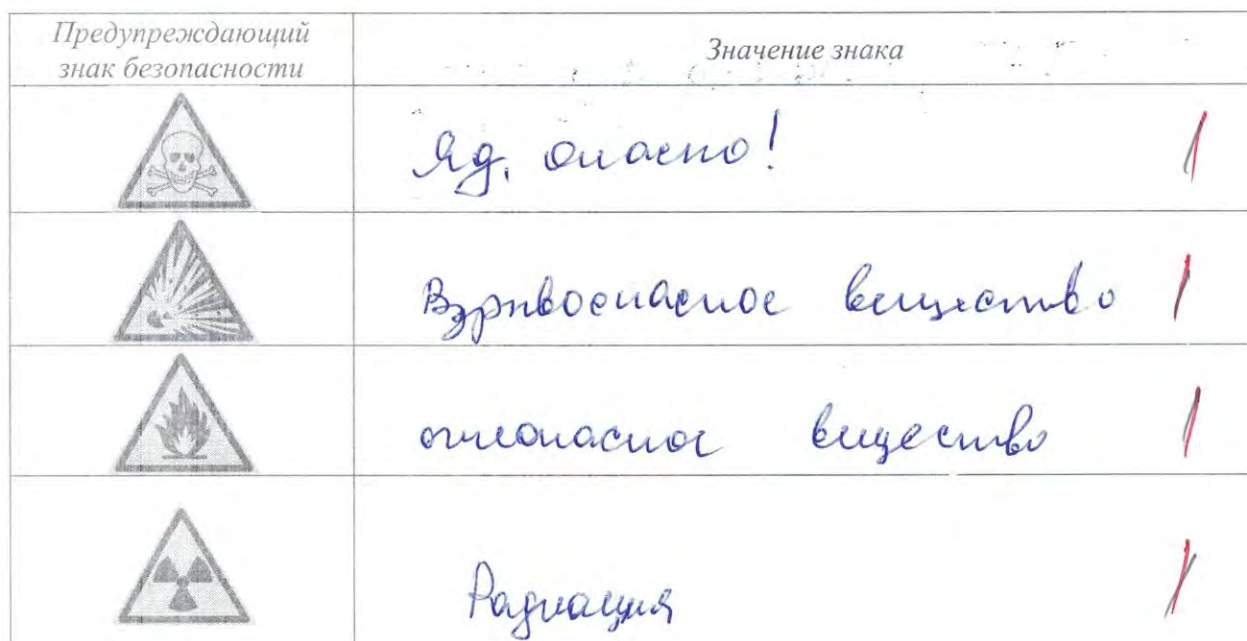 Предупреждающий
знак безопасности
Значение знака
Яд, опасно!
1
Взрывоопасное вещество
1
огнеопасное вещество
1
Радиация
1